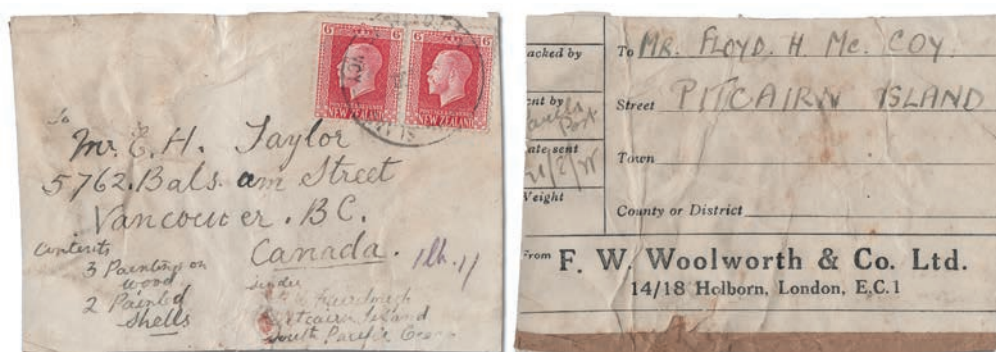 6 6 6 6
NEW ZEALAND NEW ZEALAND
To
Mr. E. H. Taylor
5762. Balsam Street
Vancouver. B.C.
Canada.
Contents
3 Paintings on
wood
2 Painted
Shells
1lb. 11
Pitcairn Island
South Pacific Ocean
acked by
ent by
Parcels
Post
ate sent
Weight
To MR. FLOYD. H. Mc. COY.
Street PITCAIRN ISLAND
Town
County or District
From F. W. Woolworth & Co. Ltd.
14/18 Holborn, London, E.C.1